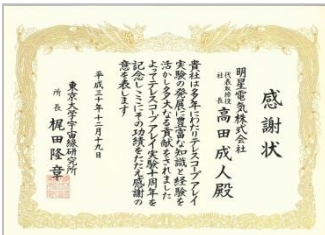 感謝状
明星電気株式会社
代表取締役
社長 高田成人殿
貴社は多年にわたりテレスコープアレイ
実験の発展に豊富な知識と経験を
活かし多大なる貢献をされました
よってテレスコープアレイ実験十周年を
記念しここにその功績をたたえ感謝の
意を表します
平成三十年十二月十九日
東京大学宇宙線研究所
所長 梶田隆章